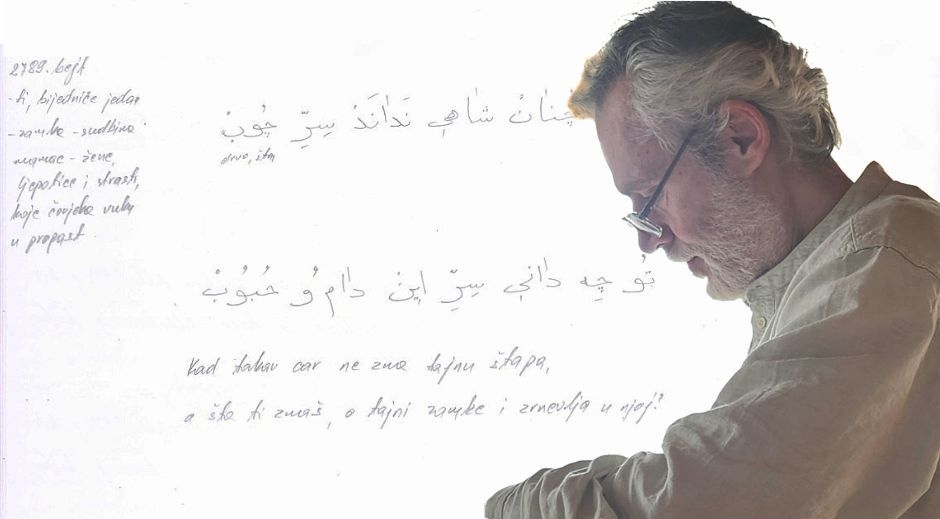 2789. bejt
- ti, bijedniče jedan
- zamke - sudbina
mamac - žene,
ljepotice i strasti,
koje čovjeka vuku
u propast
چُنٰانْ شٰاهِي نَدَانَدْ سِرِّ چُوبْ
drvo, štap
تُو چِه دانِي سِرِّ اينْ دٰام وُ حُبُوبْ
Kad takav car ne zna tajnu štapa,
a šta ti znaš, o tajni zamke i zrnevlja u njoj?